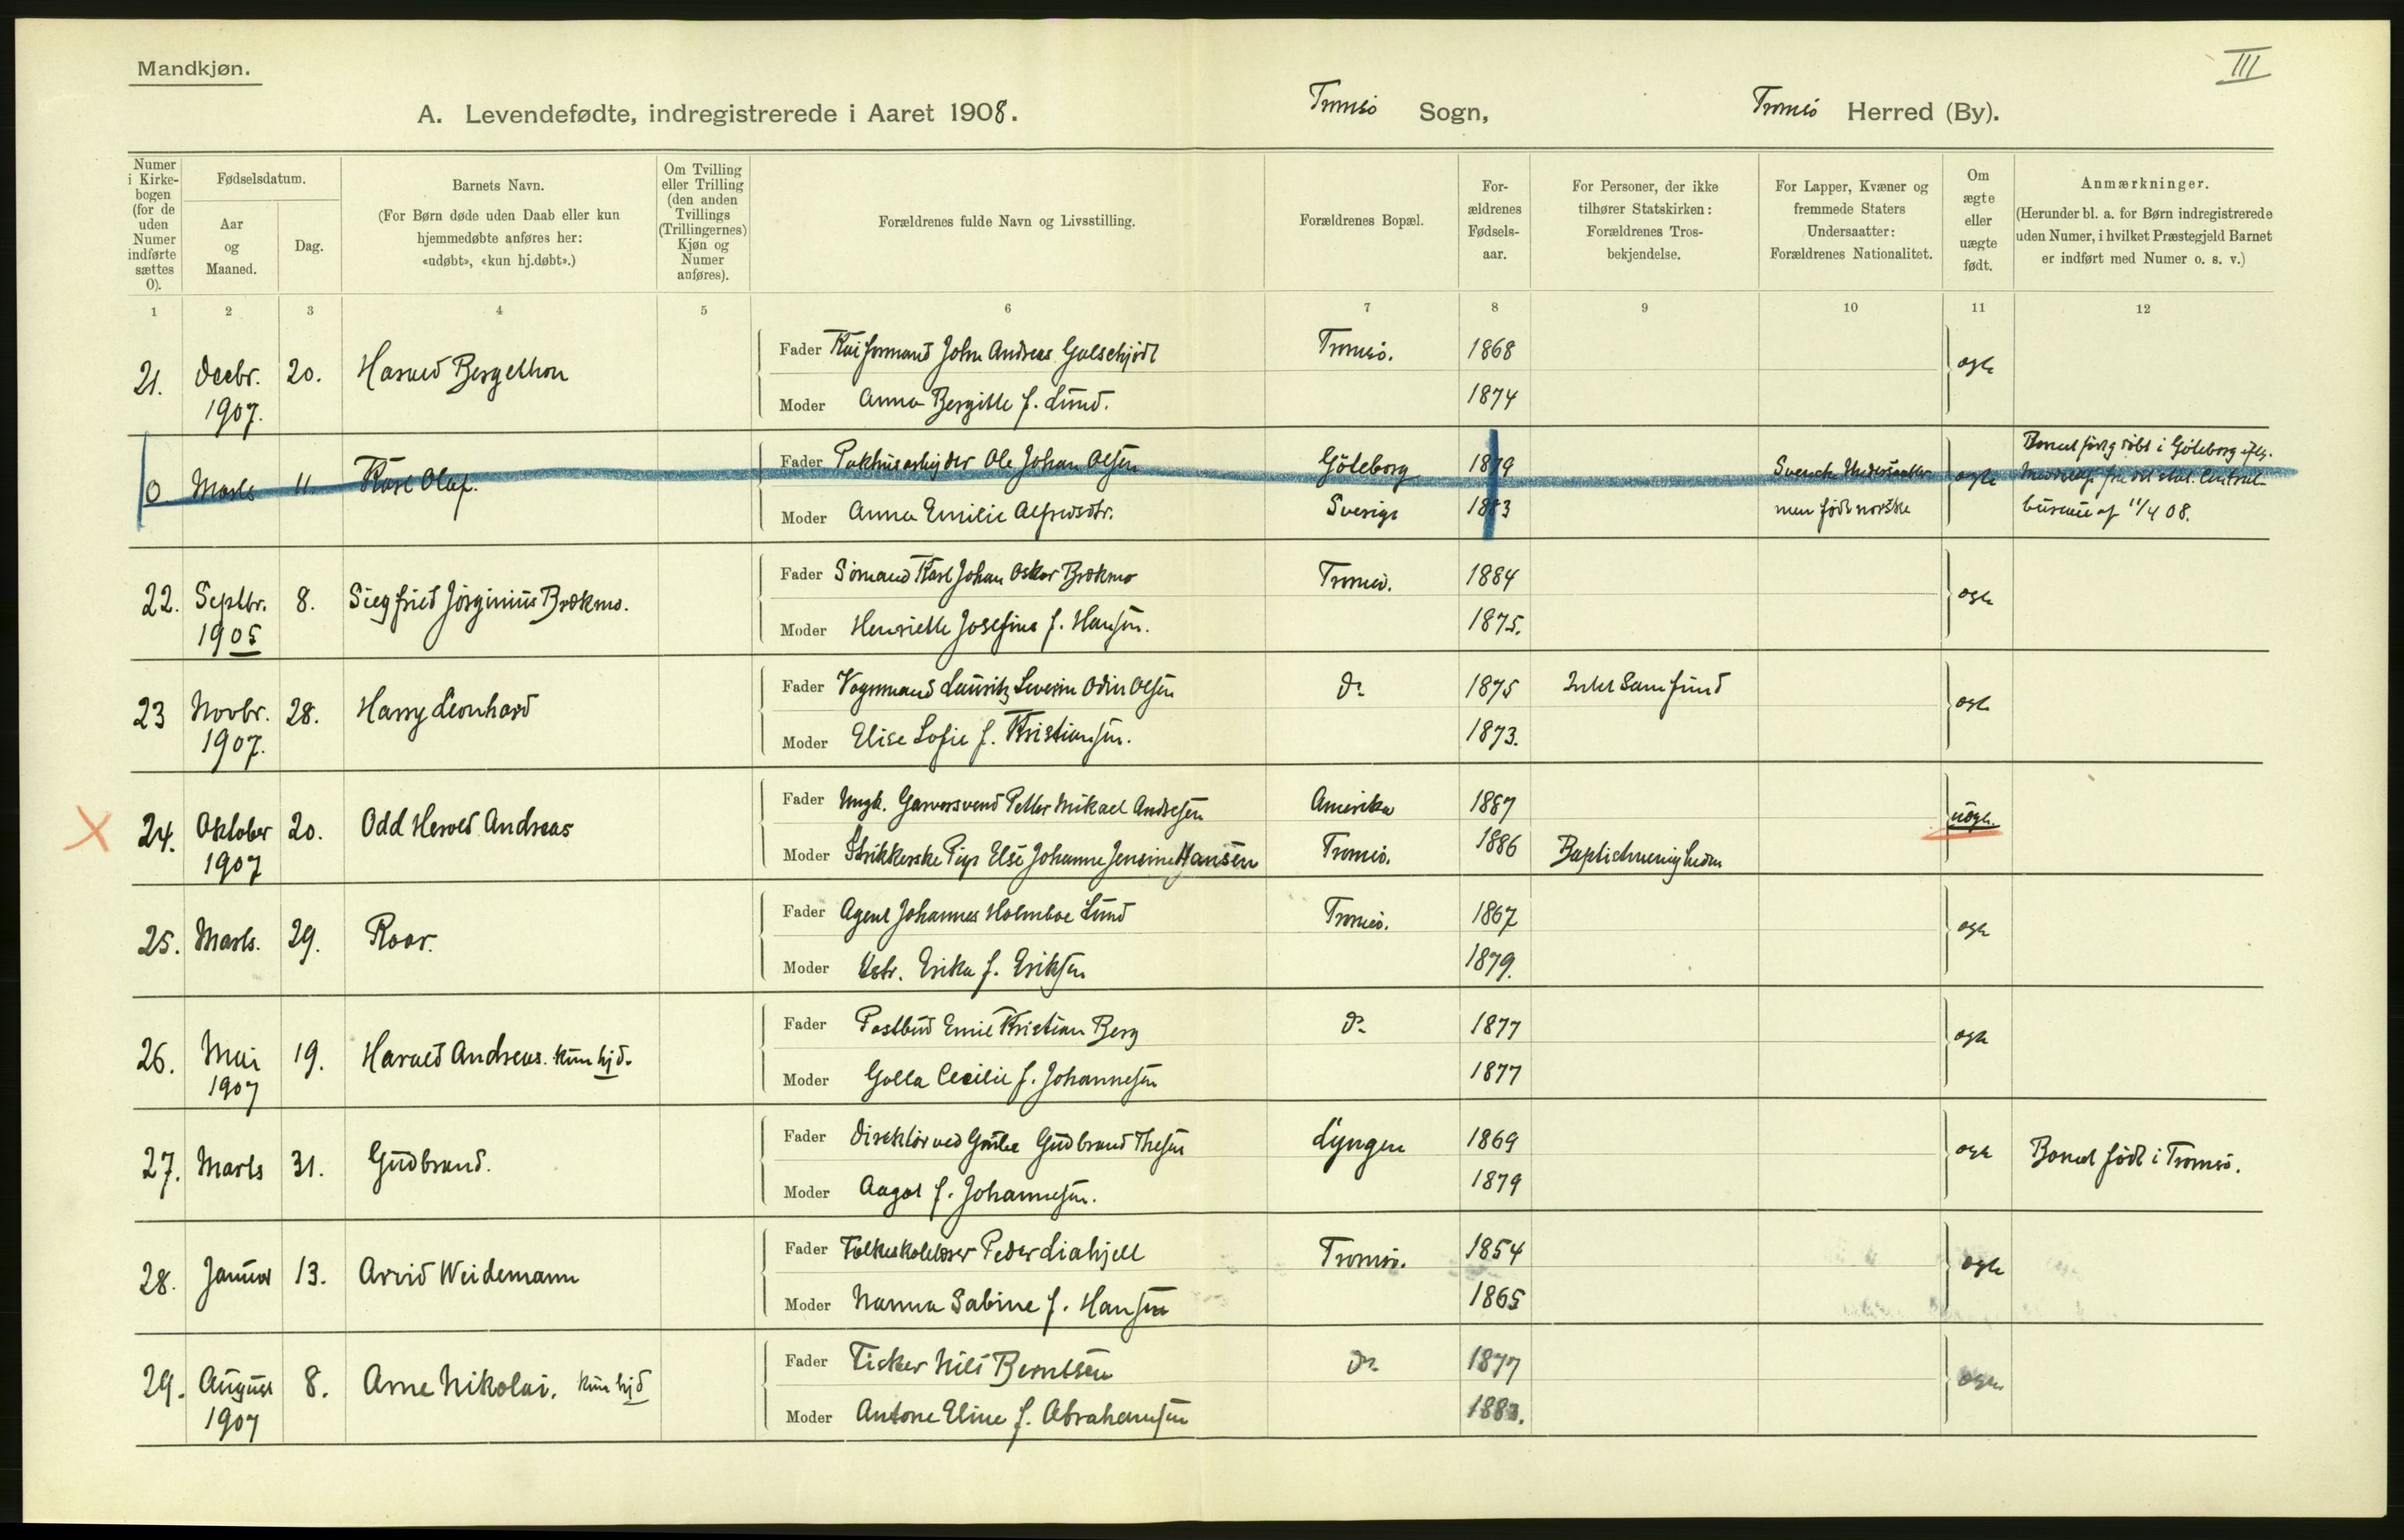 Mandkjøn.
III
A. Levendefødte, indregistrerede i Aaret 1908.
Tromsö Sogn,
Tromsö Herred (By).
Numer i Kirkebogen (for de uden Numer indførte sættes 0).
Fødselsdatum.
Aar og Maaned.
Dag.
Barnets Navn.
(For Børn døde uden Daab eller kun hjemmedøbte anføres her: «udøbt», «kun hj.døbt».)
Om Tvilling eller Trilling (den anden Tvillings (Trillingernes) Kjøn og Numer anføres).
Forældrenes fulde Navn og Livsstilling.
Forældrenes Bopæl.
Forældrenes Fødselsaar.
For Personer, der ikke tilhører Statskirken: Forældrenes Trosbekjendelse.
For Lapper, Kvæner og fremmede Staters Undersaatter: Forældrenes Nationalitet.
Om ægte eller uægte født.
Anmærkninger.
(Herunder bl. a. for Børn indregistrerede uden Numer, i hvilket Præstegjeld Barnet er indført med Numer o. s. v.)
1 2 3 4 5 6 7 8 9 10 11 12
21. Decbr. 20. Harald Bergethon Fader Kaiformand John Andreas Galschjödt Tromsö. 1868 ægte
1907. Moder Anna Bergitte f. Lund. 1874
0 Marts 11. Karl Olaf. Fader Pakhusarbejder Ole Johan Olsen Göteborg 1879 Svenske Undersaatter ægte Barnet født og döbt i Göteborg iflg. Meddelelse fra det stat. Centralbureau af 11/4 08.
Moder Anna Emilie Alfredsdtr. Sverige 1883 men födt norske
22. Septbr. 8. Siegfried Jørginius Brækmo. Fader Sömand Karl Johan Oskar Brækmo Tromsö. 1884 ægte
1905 Moder Henriette Josefine f. Hansen. 1875.
23 Novbr. 28. Harry Leonhard Fader Vognmand Lauritz Severin Odin Olsen do 1875 Intet Samfund ægte
1907. Moder Elise Sofie f. Kristiansen. 1873.
24. Oktober 20. Odd Herolf Andreas Fader Ungk. Garversvend Petter Mikael Andresen Amerika 1887 uægte
1907 Moder Strikkerske Pige Else Johanne Jensine Hansen Tromsö. 1886 Baptistmenigheden
25. Marts. 29. Roar. Fader Agent Johannes Holmboe Lund Tromsö. 1867 ægte
Moder Erika f. Eriksen 1879.
26. Mai 19. Harald Andreas. kun hjd. Fader Postbud Emil Kristian Berg do 1877 ægte
1907 Moder Golla Cecilie f. Johannesen 1877
27. Marts 31. Gudbrand. Fader Direktör ved Grube Gudbrand Thesen Lyngen 1869 ægte Barnet födt i Tromsö.
Moder Aagot f. Johannesen. 1879
28. Januar 13. Arvid Weidemann Fader Folkeskolelærer Peder Liahjell Tromsö. 1854 ægte
Moder Nanna Sabine f. Hansen 1865
29. August 8. Arne Nikolai. kun hjd Fader Fisker Nils Berntsen do 1877 ægte
1907 Moder Antone Eline f. Abrahamsen 1883.